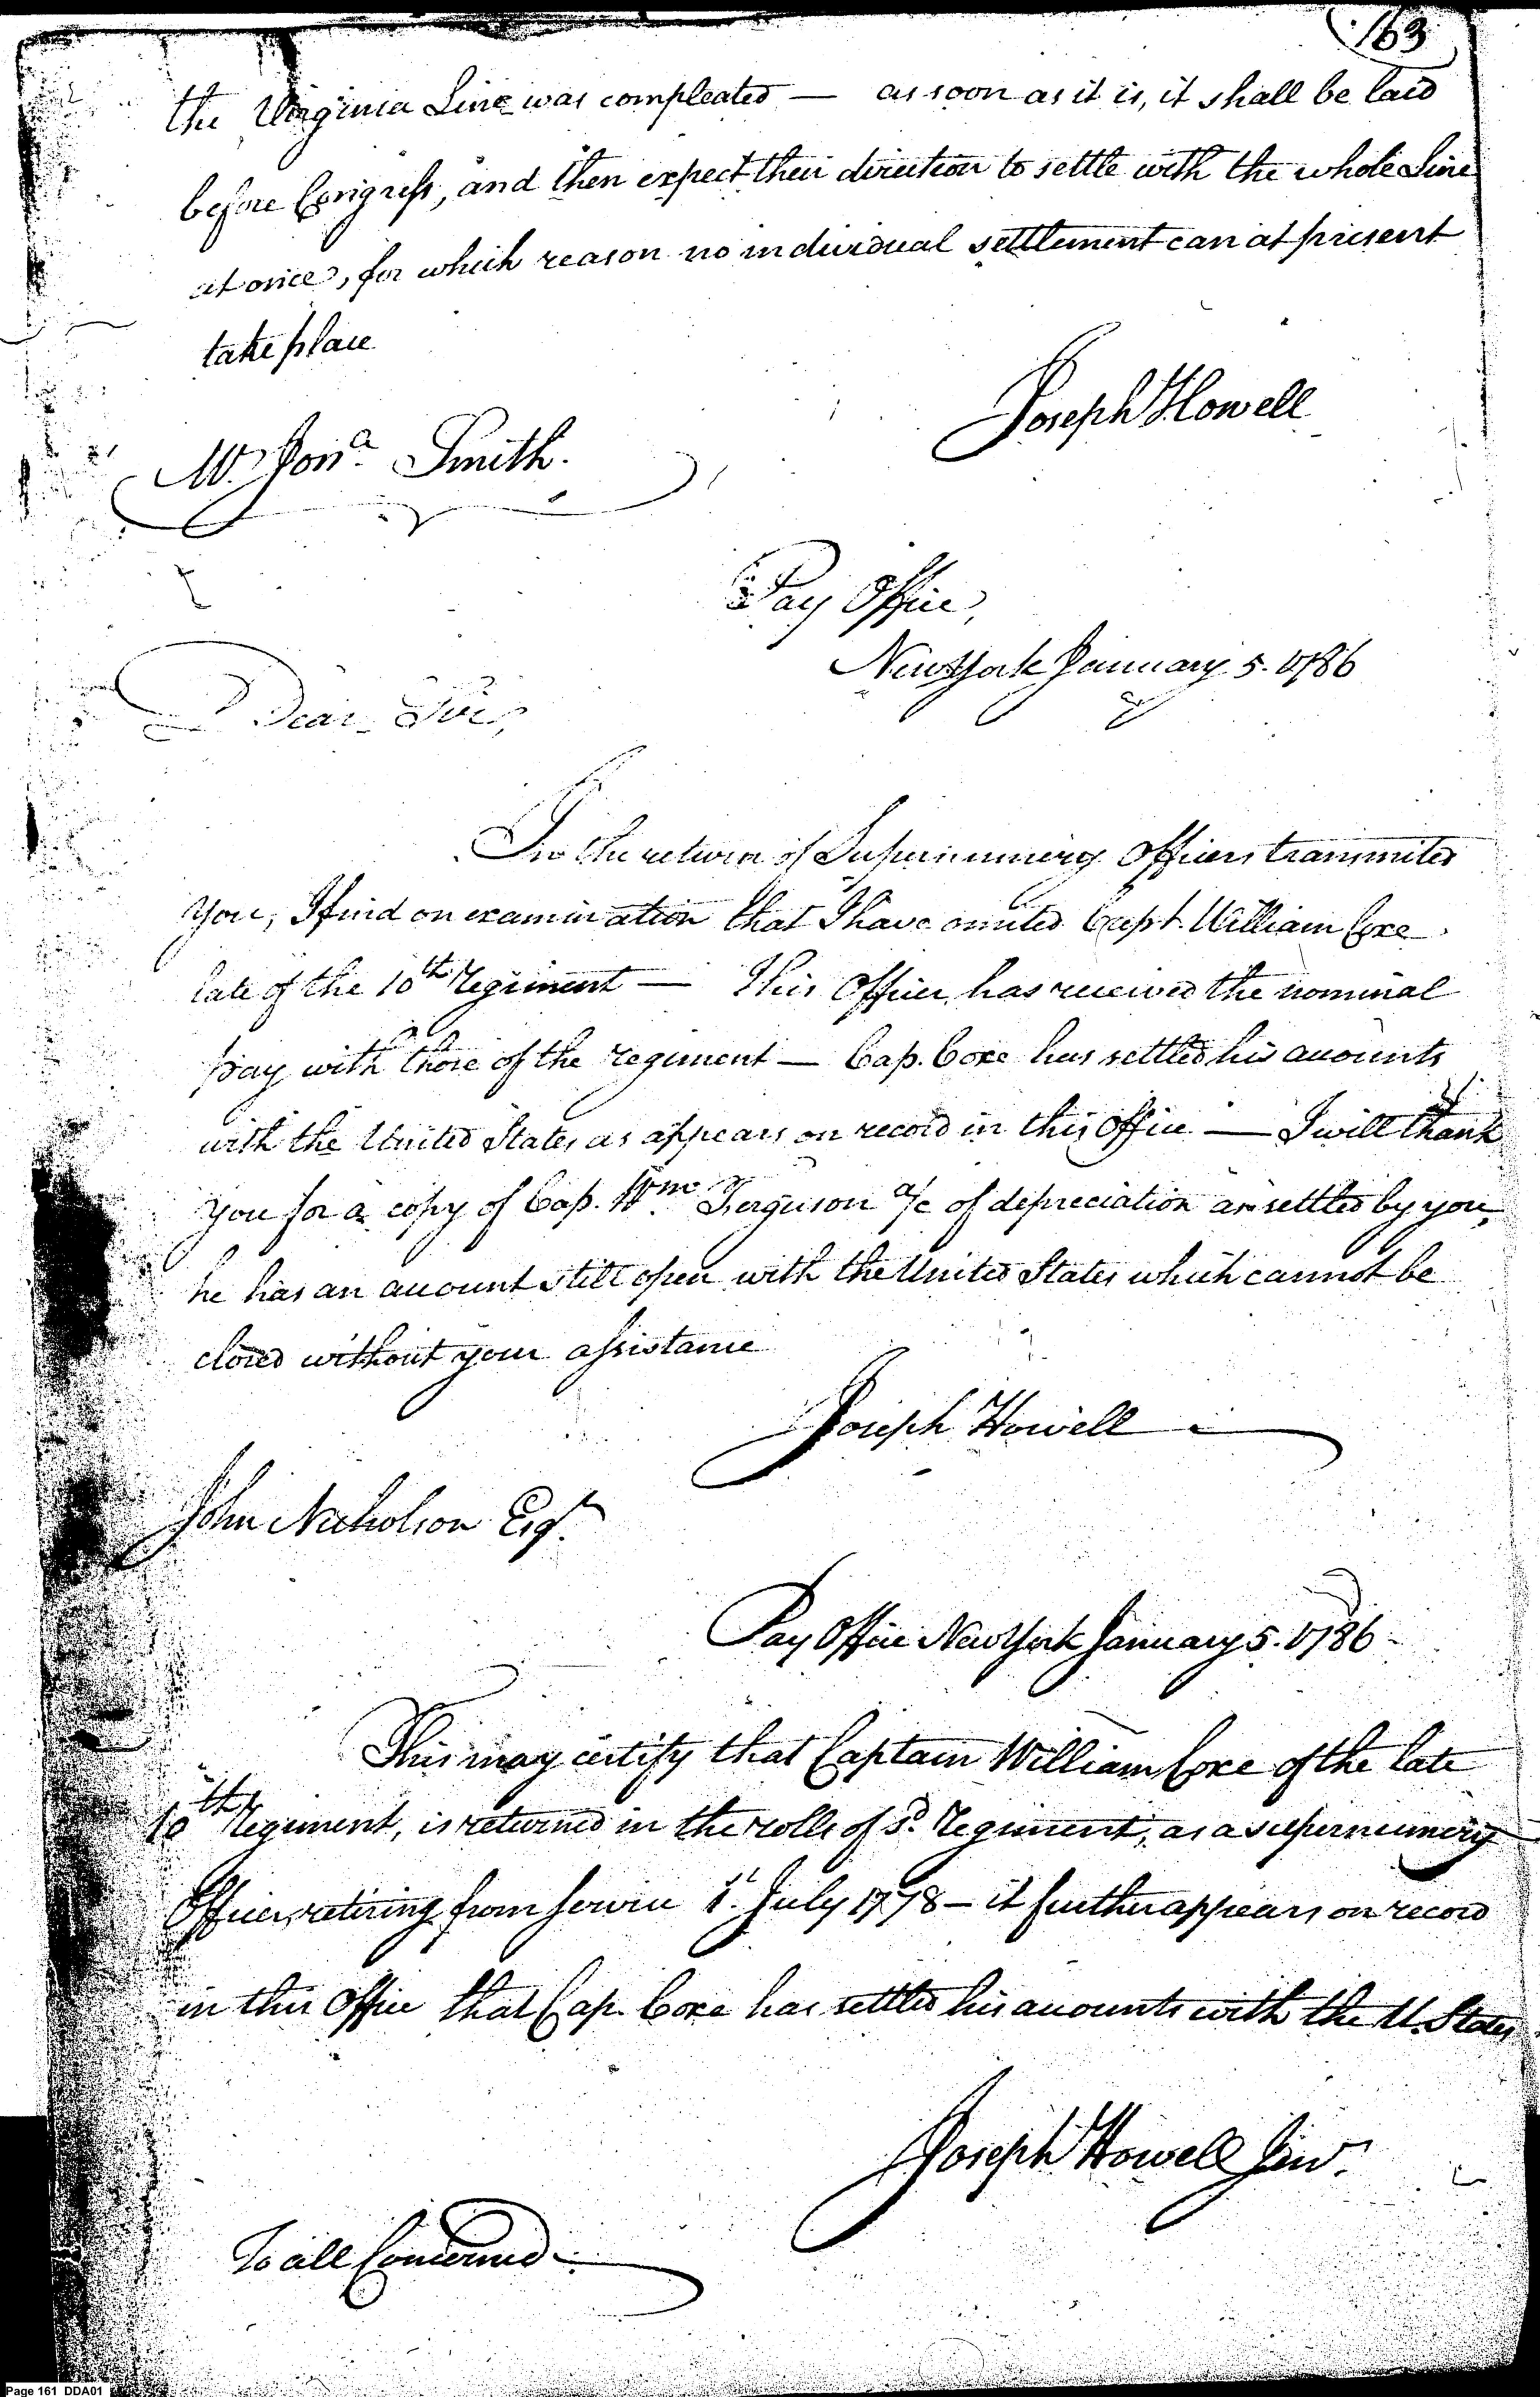 163
the Virginia Line was compleated — as soon as it is, it shall be laid
before Congress, and then expect their direction to settle with the whole Line
at once, for which reason no individual settlement can at present
take place
Joseph Howell
Mr. Jona. Smith.
Pay Office,
New York January 5. 1786
Dear Sir,
In the return of Supernumery Officers transmited
you, I find on examination that I have omited Capt. William Coxe
late of the 10th Regiment — This Officer has received the nominal
pay with those of the regiment — Cap. Coxe has settled his accounts
with the United States as appears on record in this Office — I will thank
you for a copy of Cap. Wm. Ferguson a/c of depreciation as settled by you,
he has an account still open with the United States which cannot be
closed without your assistance
Joseph Howell
John Nicholson Esqr.
Pay Office New York January 5. 1786
This may certify that Captain William Coxe of the late
10th Regiment, is returned in the rolls of sd. Regiment, as a supernumery
Officer, retiring from service 1st July 1778 — it further appears on record
in this Office that Cap. Coxe has settled his accounts with the U. States
Joseph Howell Junr.
To all Concerned
Page 161 DDA01